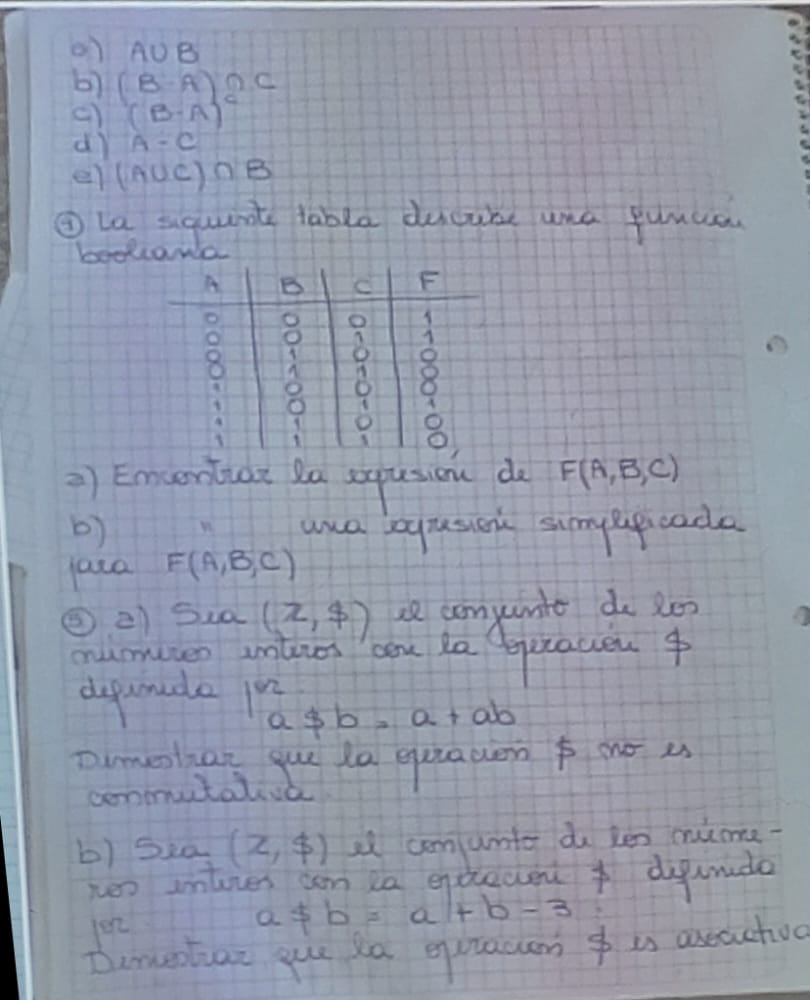 a) A∪B
b) (B-A)∩C
c) (B-A)ᶜ
d) A-C
e) (A∪C)∩B
④ La siguiente tabla describe una función
booleana
A B C F
0 0 0 1
0 0 1 1
0 1 0 0
0 1 1 0
1 0 0 0
1 0 1 1
1 1 0 0
1 1 1 0
a) Encontrar la expresión de F(A,B,C)
b) " una expresión simplificada
para F(A,B,C)
⑤ a) Sea (Z,$) el conjunto de los
números enteros con la operación $
definida por
a $ b = a + ab
Demostrar que la operación $ no es
conmutativa
b) Sea (Z,$) el conjunto de los núme-
ros enteros con la operación $ definida
por a $ b = a + b - 3.
Demostrar que la operación $ es asociativa